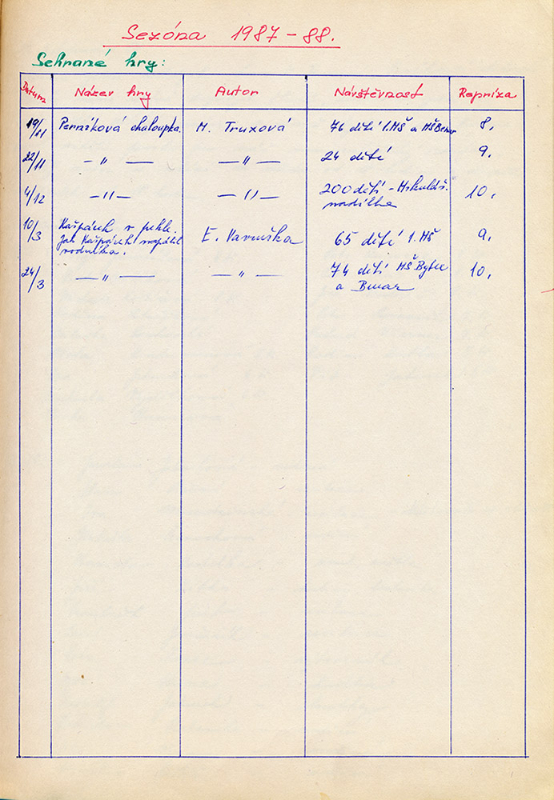 Sezóna 1987-88.
Sehrané hry:
Datum Název hry Autor Návštěvnost Repríza
19/11 Perníková chaloupka M. Truxová 76 dětí 1.MŠ a MŠ Benar 8.
22/11 -„- -„- 24 dětí 9.
4/12 -„- -„- 200 dětí - Mikulášs.
nadílka 10.
10/3 Kašpárek v pekle. E. Karnuška 65 dětí 1.MŠ 9.
Jak Kašpárek napálil
vodníka.
24/3 -„- -„- 74 dětí MŠ Bytex 10.
a Benar